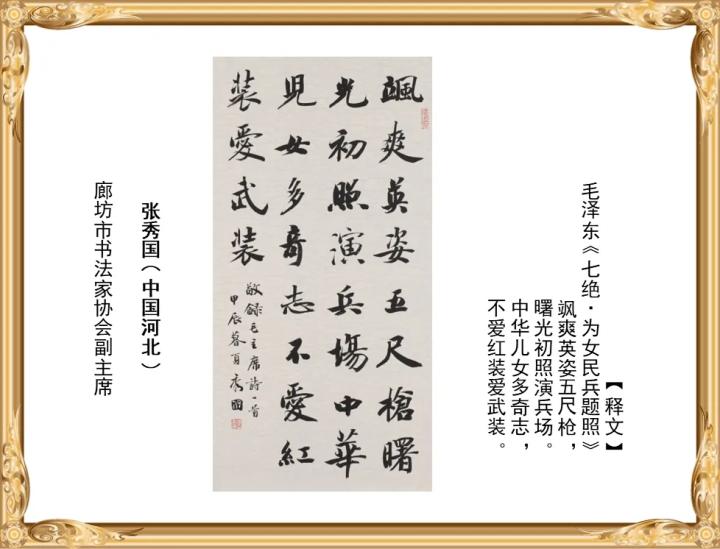 【释文】
毛泽东《七绝·为女民兵题照》
飒爽英姿五尺枪，
曙光初照演兵场。
中华儿女多奇志，
不爱红装爱武装。
颯爽英姿五尺槍曙
光初照演兵場中華
兒女多奇志不愛紅
裝愛武裝
敬録毛主席詩一首
甲辰暮夏秀國
张秀国（中国河北）
廊坊市书法家协会副主席